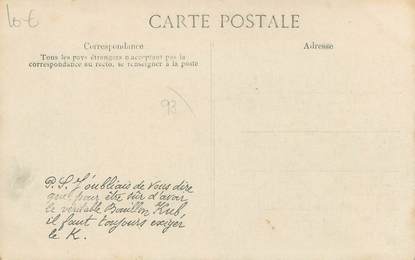 10€
CARTE POSTALE
Correspondance
Tous les pays étrangers n'acceptant pas la
correspondance au recto, se renseigner à la poste
Adresse
93
P.S. J'oubliais de vous dire
que pour être sûr d'avoir
le véritable Bouillon Kub
il faut toujours exiger
le K.